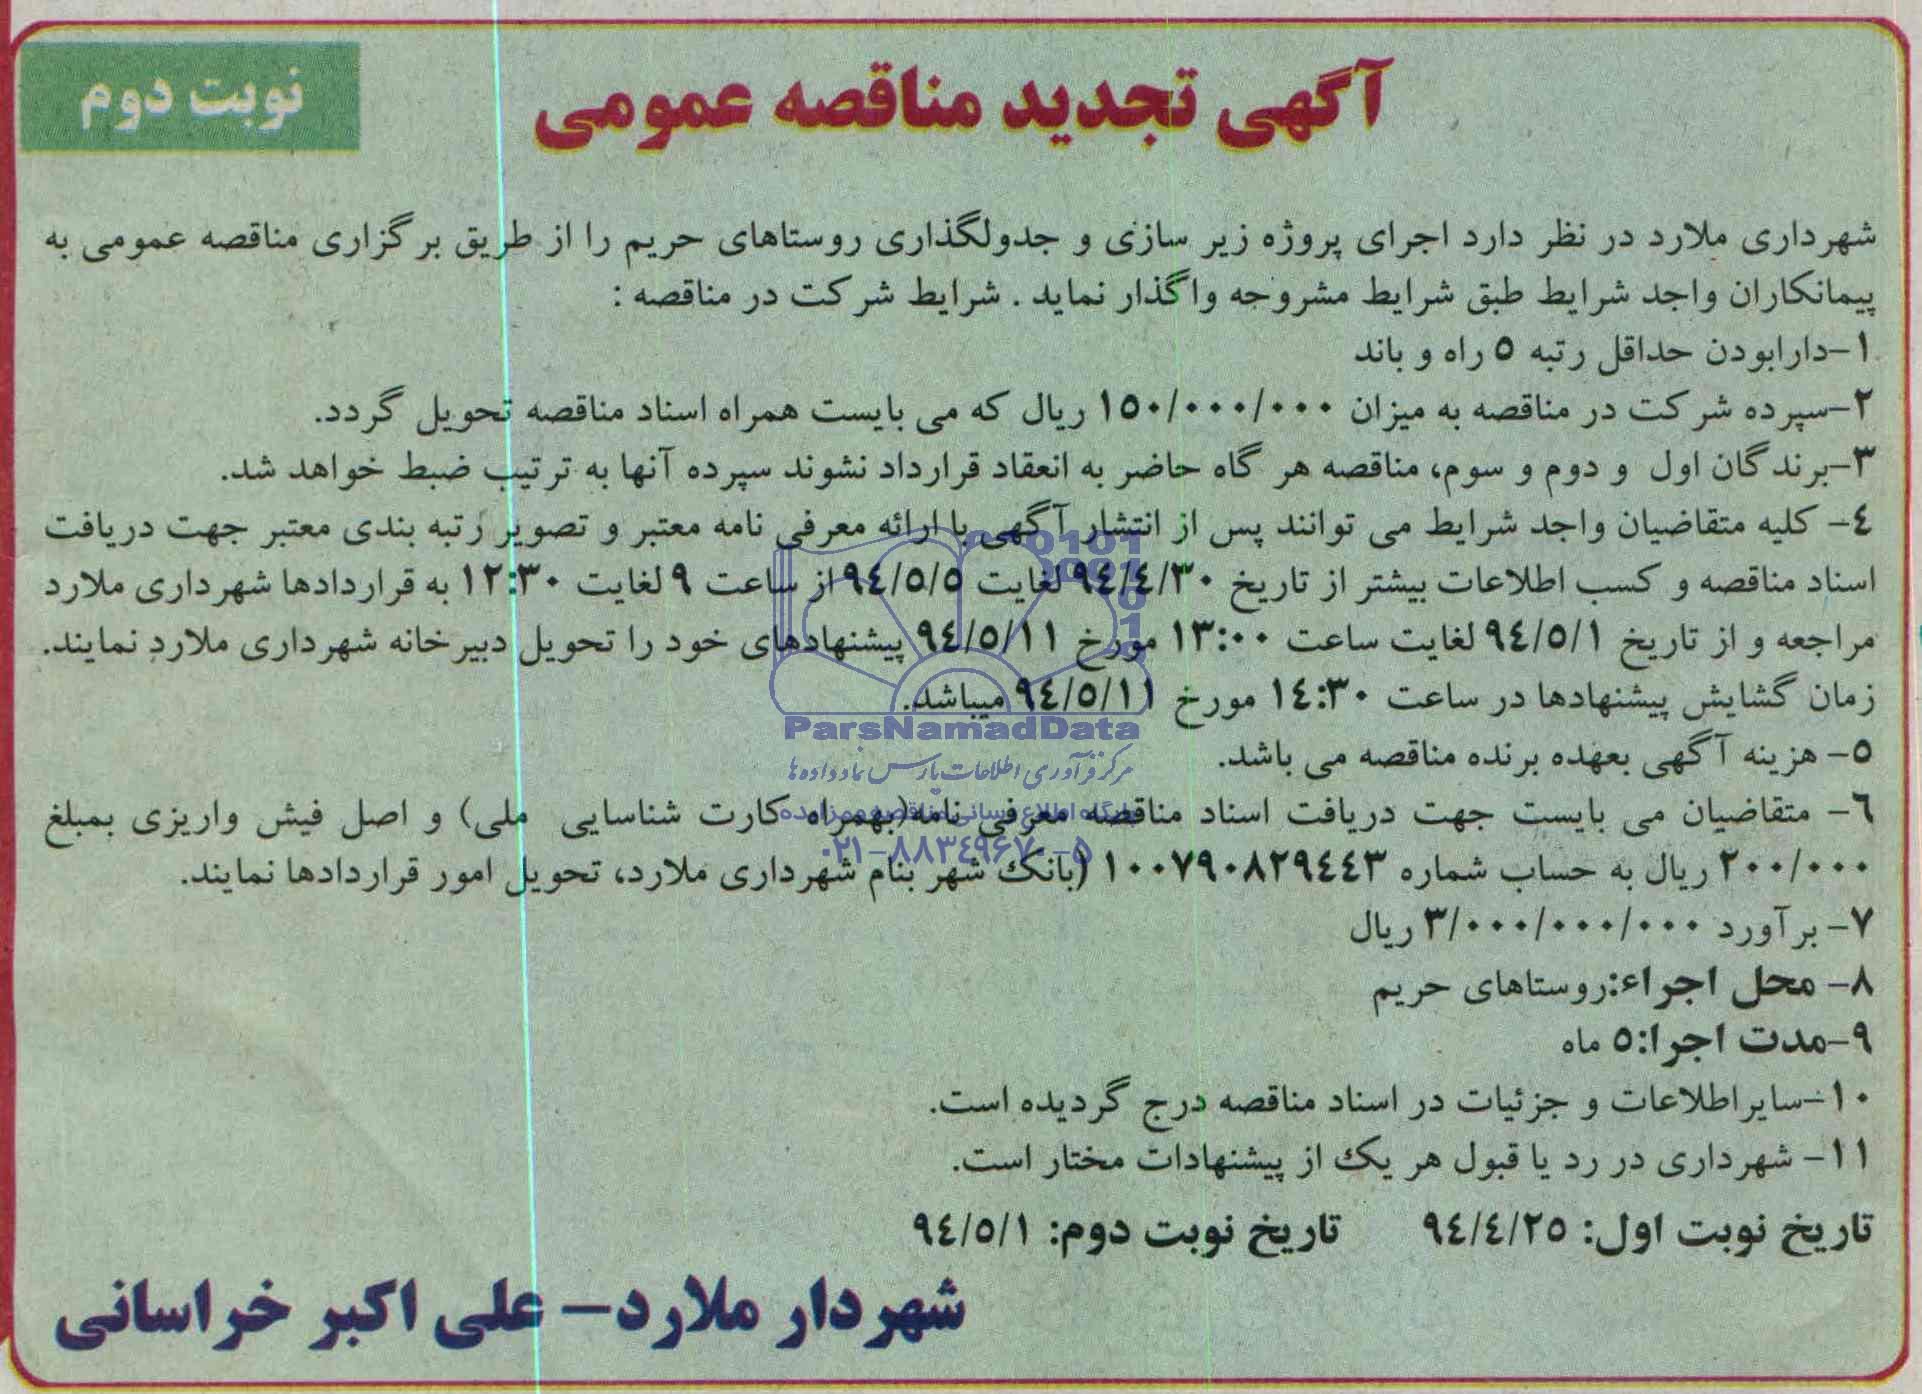 آگهی تجدید مناقصه عمومی
نوبت دوم
شهرداری ملارد در نظر دارد اجرای پروژه زیر سازی و جدولگذاری روستاهای حریم را از طریق برگزاری مناقصه عمومی به
پیمانکاران واجد شرایط طبق شرایط مشروحه واگذار نماید . شرایط شرکت در مناقصه :
۱-دارابودن حداقل رتبه ۵ راه و باند
۲-سپرده شرکت در مناقصه به میزان ۱۵۰/۰۰۰/۰۰۰ ریال که می بایست همراه اسناد مناقصه تحویل گردد.
۳-برندگان اول و دوم و سوم، مناقصه هر گاه حاضر به انعقاد قرارداد نشوند سپرده آنها به ترتیب ضبط خواهد شد.
۴- کلیه متقاضیان واجد شرایط می توانند پس از انتشار آگهی با ارائه معرفی نامه معتبر و تصویر رتبه بندی معتبر جهت دریافت
اسناد مناقصه و کسب اطلاعات بیشتر از تاریخ ۹۴/۴/۳۰ لغایت ۹۴/۵/۵ از ساعت ۹ لغایت ۱۲:۳۰ به قراردادها شهرداری ملارد
مراجعه و از تاریخ ۹۴/۵/۱ لغایت ساعت ۱۳:۰۰ مورخ ۹۴/۵/۱۱ پیشنهادهای خود را تحویل دبیرخانه شهرداری ملارد نمایند.
زمان گشایش پیشنهادها در ساعت ۱۴:۳۰ مورخ ۹۴/۵/۱۱ میباشد.
ParsNamadData
مرکز فرآوری اطلاعات پارس نماد داده ها
۵- هزینه آگهی بعهده برنده مناقصه می باشد.
پایگاه اطلاع رسانی مناقصه و مزایده
۶- متقاضیان می بایست جهت دریافت اسناد مناقصه معرفی نامه(بهمراه کارت شناسایی ملی) و اصل فیش واریزی بمبلغ
۰۲۱-۸۸۳۴۹۶۷۰-۵
۲۰۰/۰۰۰ ریال به حساب شماره ۱۰۰۷۹۰۸۲۹۴۴۳ (بانک شهر بنام شهرداری ملارد، تحویل امور قراردادها نمایند.
۷- برآورد ۳/۰۰۰/۰۰۰/۰۰۰ ریال
۸- محل اجراء:روستاهای حریم
۹-مدت اجرا:۵ ماه
۱۰-سایراطلاعات و جزئیات در اسناد مناقصه درج گردیده است.
۱۱- شهرداری در رد یا قبول هر یک از پیشنهادات مختار است.
تاریخ نوبت اول: ۹۴/۴/۲۵ تاریخ نوبت دوم: ۹۴/۵/۱
شهردار ملارد- علی اکبر خراسانی